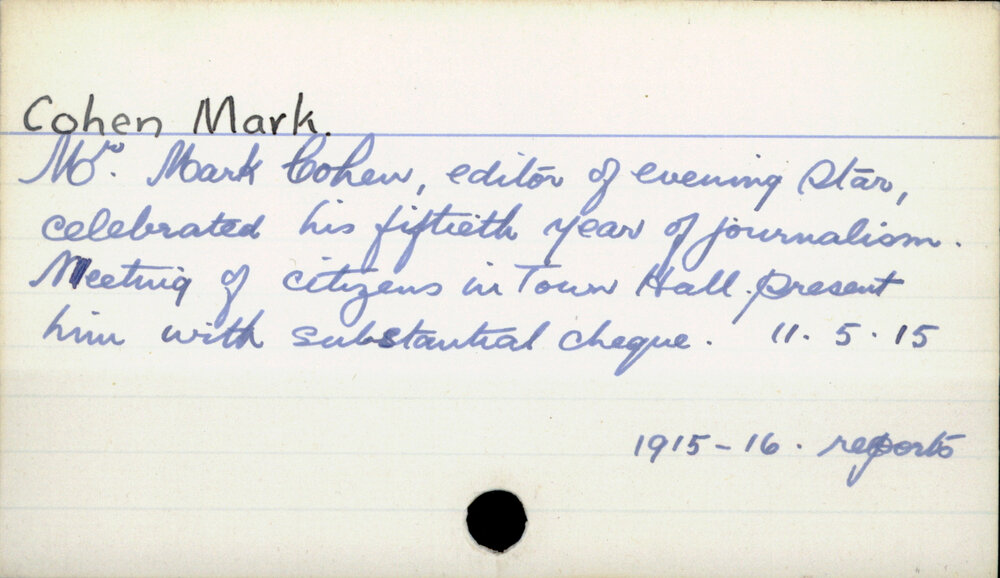 Cohen Mark.
Mr. Mark Cohen, editor of evening Star,
celebrated his fiftieth year of journalism.
Meeting of citizens in Town Hall. present
him with substantial cheque. 11. 5. 15
1915-16. reports